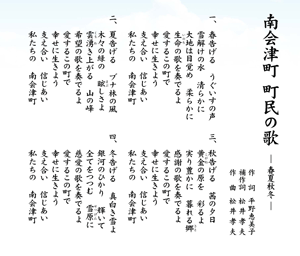 南会津町 町民の歌
―春夏秋冬―
作詞 平野恵美子
補作詞 松井孝夫
作曲 松井孝夫
一、春告げる うぐいすの声
雪解けの水 清らかに
大地は目覚め 柔らかに
生命の歌を奏でるよ
愛するこの町で
幸せに生きよう
支え合い 信じあい
私たちの 南会津町
二、夏告げる ブナ林の風
木々の緑の 眩しさよ
雲湧き上がる 山の峰
希望の歌を奏でるよ
愛するこの町で
幸せに生きよう
支え合い 信じあい
私たちの 南会津町
三、秋告げる 茜の夕日
黄金の原を 彩るよ
実り豊かに 暮れる郷
感謝の歌を奏でるよ
愛するこの町で
幸せに生きよう
支え合い 信じあい
私たちの 南会津町
四、冬告げる 真白き雪よ
銀河のひかり 輝いて
全てをつつむ 雪原に
慈愛の歌を奏でるよ
愛するこの町で
幸せに生きよう
支え合い 信じあい
私たちの 南会津町